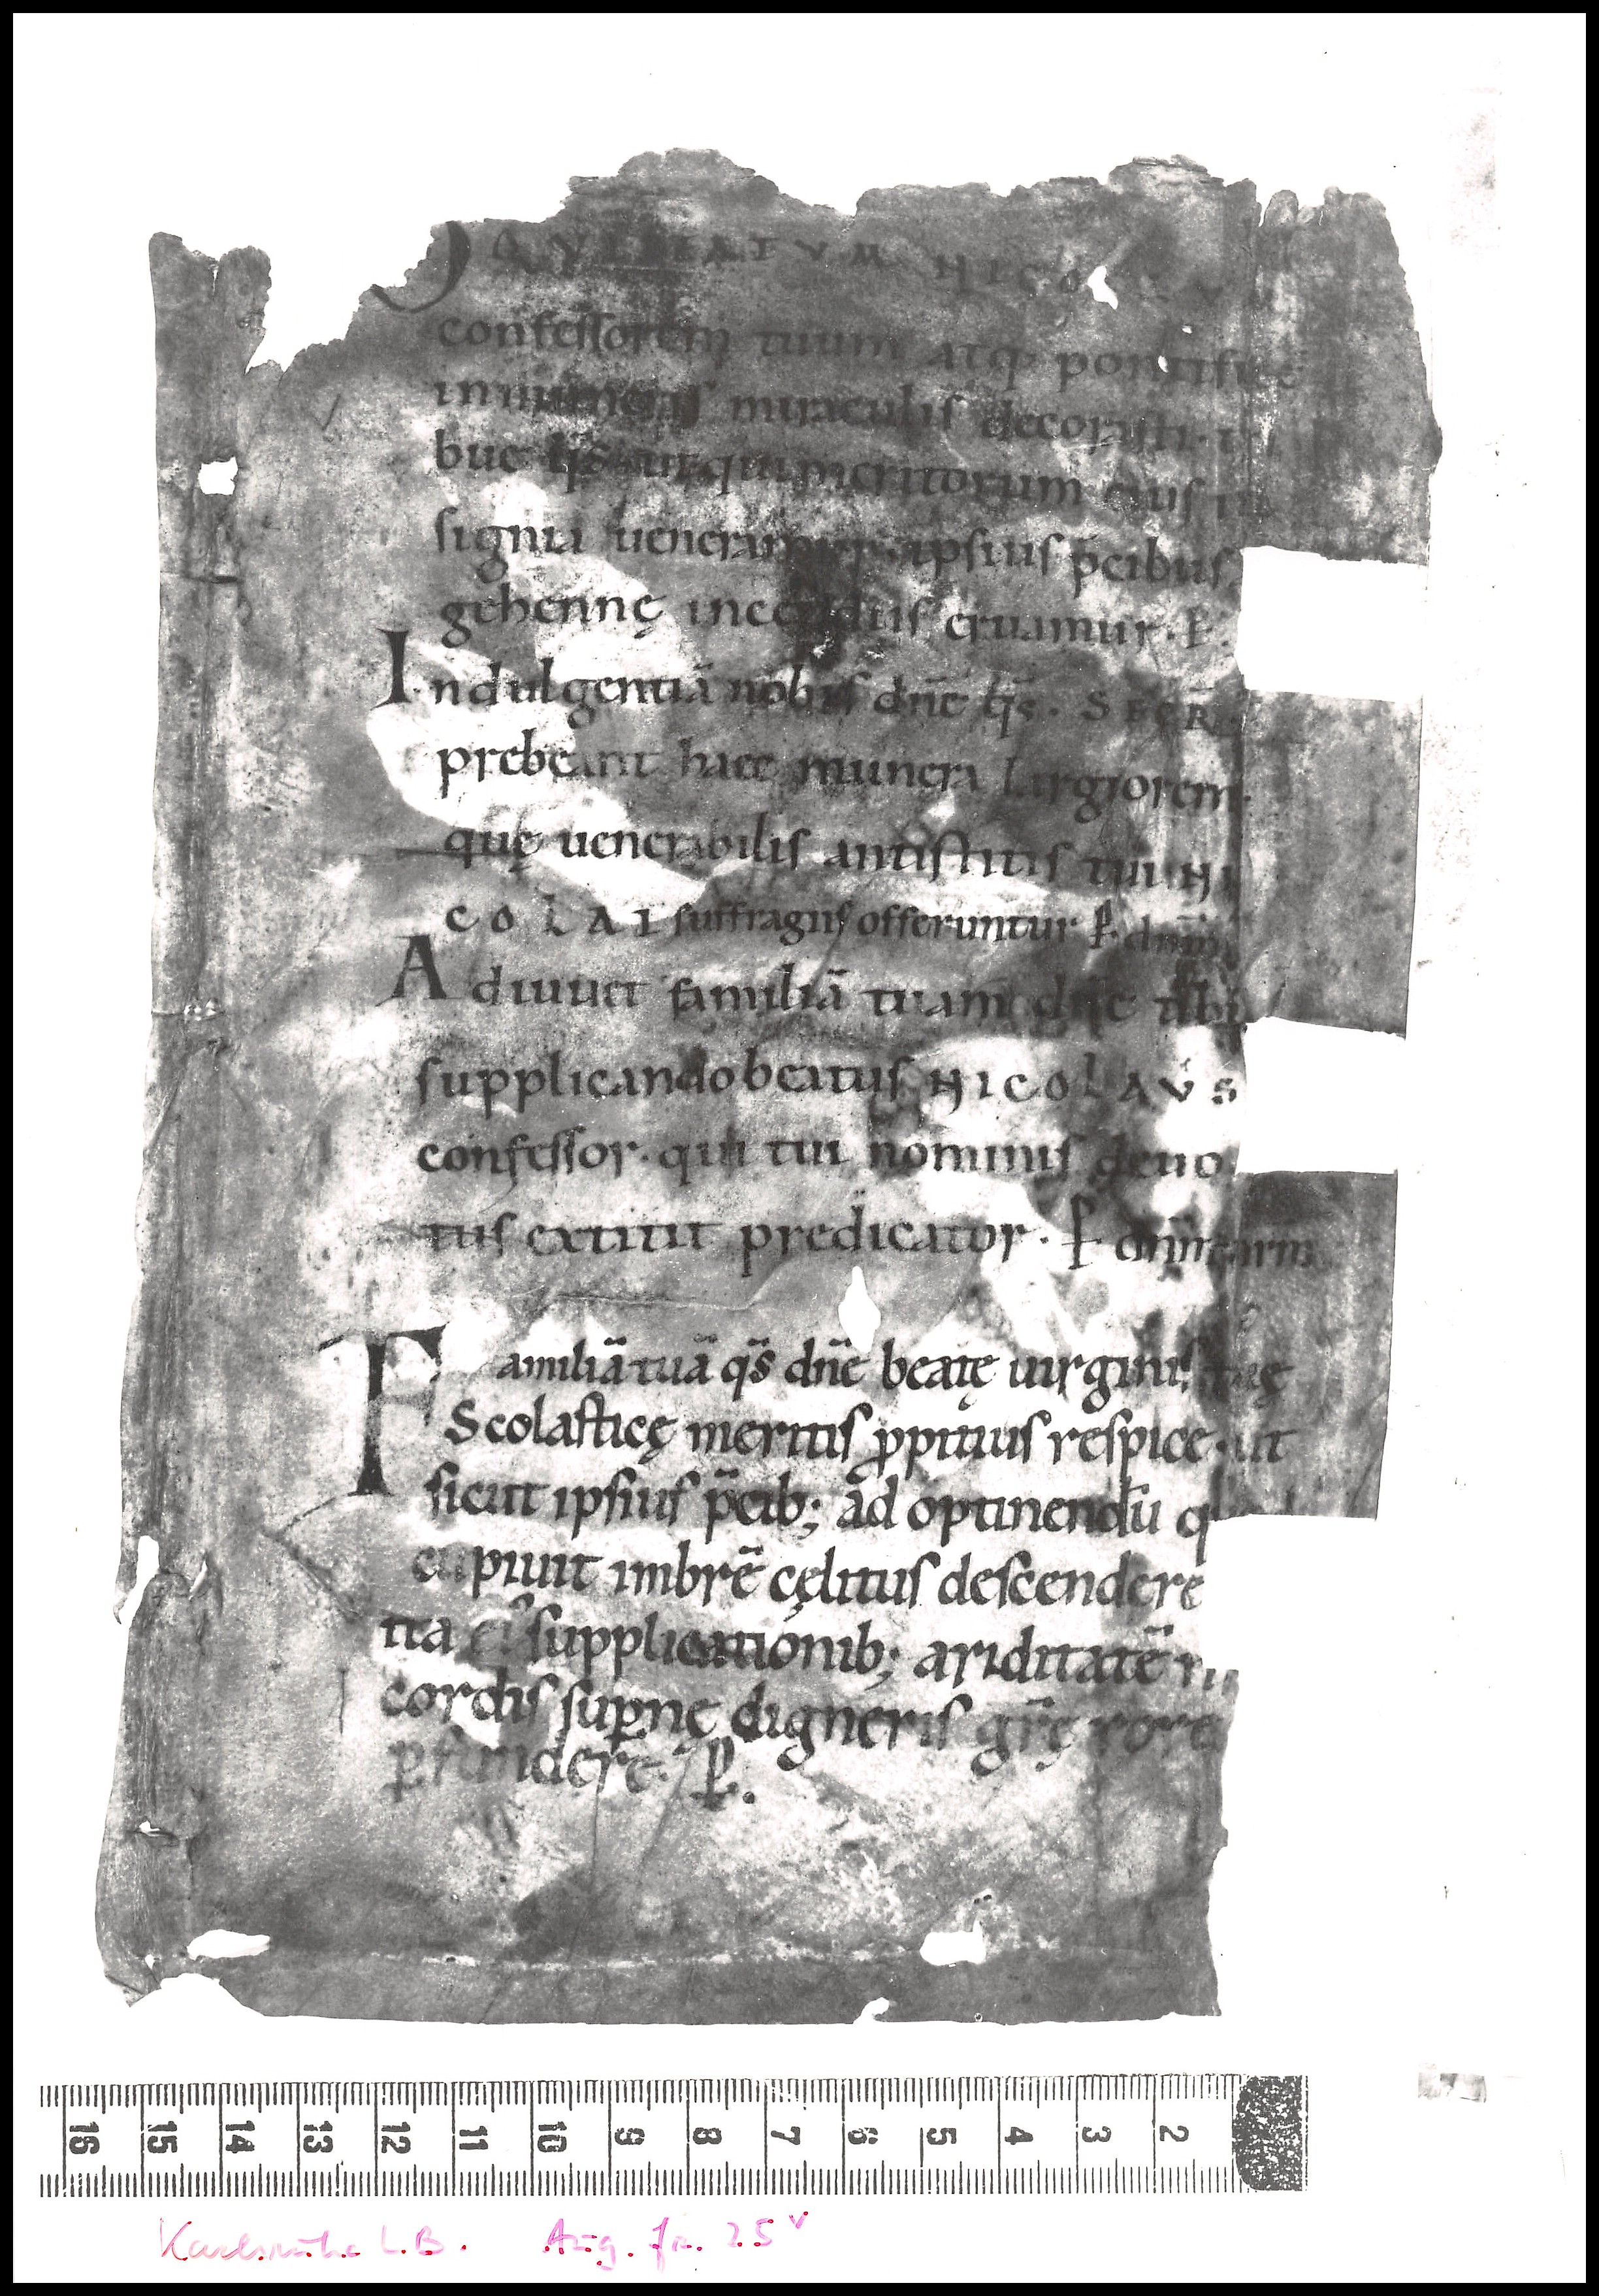 QUI BEATVM NICO
confessorem tuum atq; pontificē
innumeris miraculis decorasti· tri
bue q̄s ut qui meritorum eius in
signia ueneramur· ipsius p̄cibus
gehennę incendiis eruamur· P̲.
Indulgentiā nobis dn̄e q̄s· SECR̄
prebeant haec munera largiorem·
quę uenerabilis antistitis tui NI
COLAI suffragiis offeruntur· P̲. dnm̄
Adiuuet familiā tuam dn̄e tibi
supplicando beatus NICOLAVS
confessor· qui tui nominis deuo
tus extitit predicator· P̲
Familiā tuā q̄s dn̄e beatę uirginis tuę
Scolasticę meritis ꝓpitius respice· ut
sicut ipsius p̄cib; ad optinendū q
cupiuit imbrē cęlitus descendere
ita ei' supplicationib; ariditatē n
cordis suꝑnę digneris gr̄ę rore
ꝑfundere· P̲.
16 15 14 13 12 11 10 9 8 7 6 5 4 3 2
Karlsruhe L.B. Aug. fr. 25ᵛ